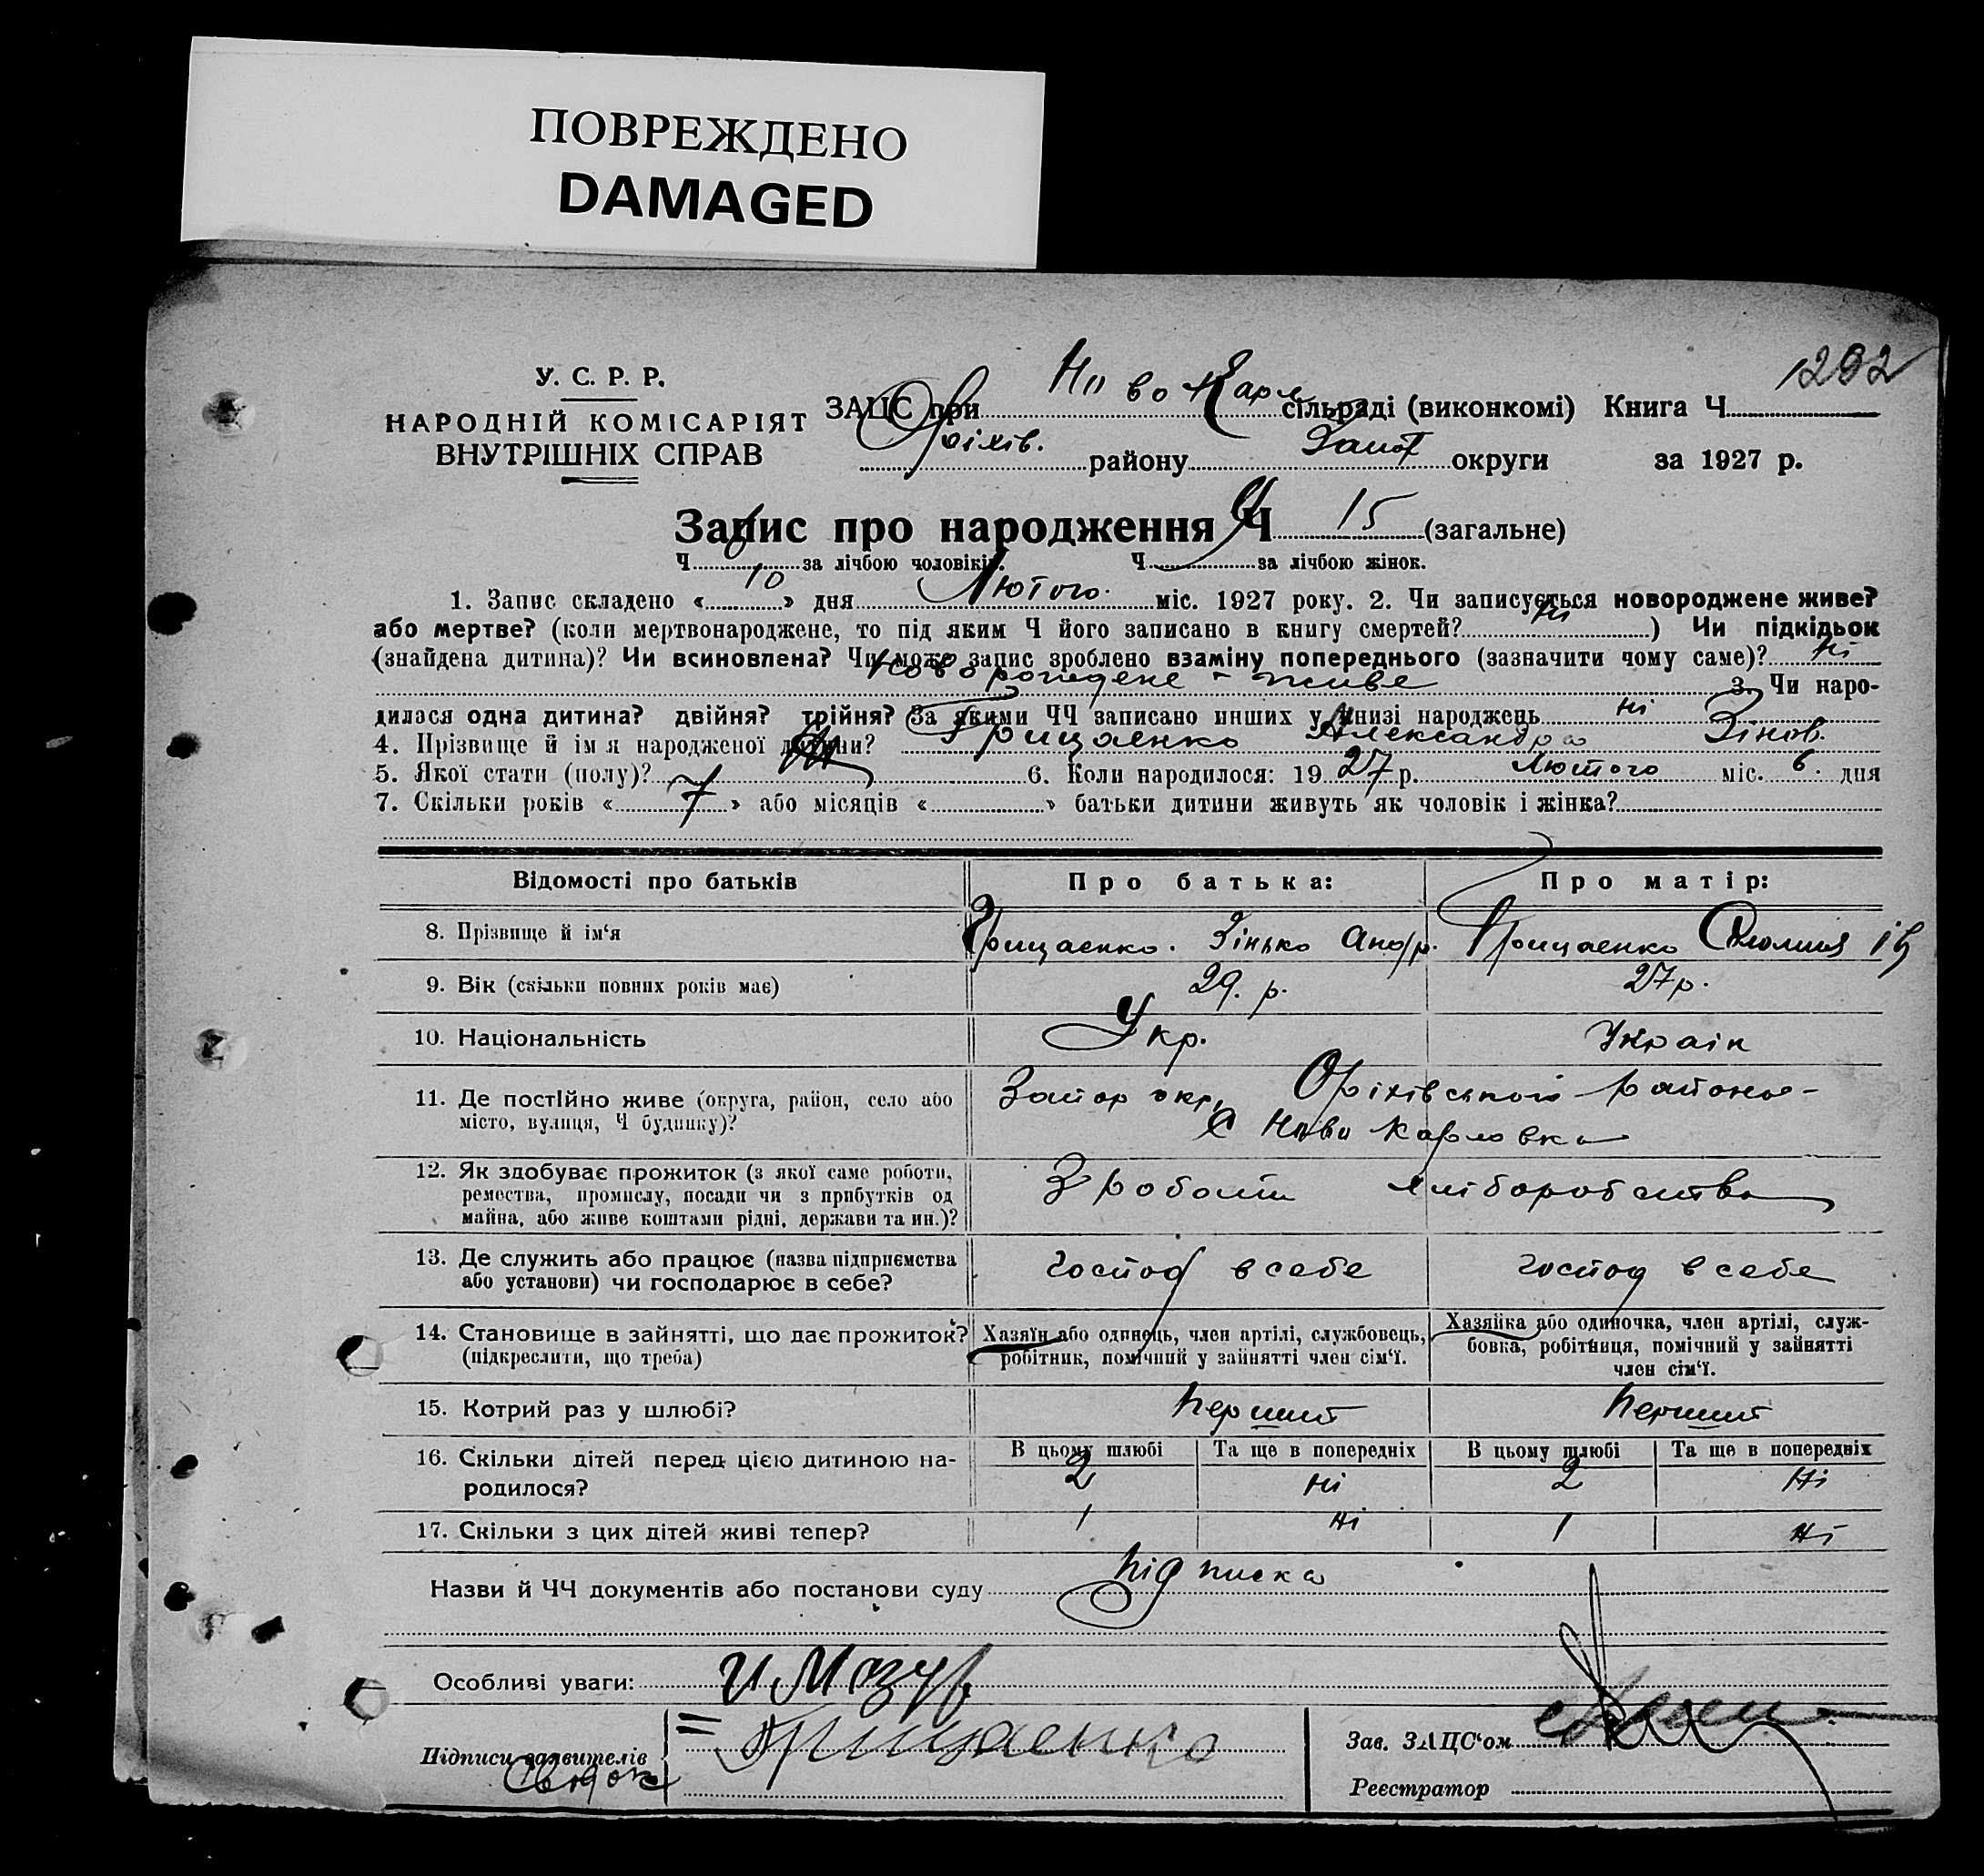 ПОВРЕЖДЕНО
DAMAGED
1232
У. С. Р. Р.
НАРОДНІЙ КОМІСАРІЯТ
ВНУТРІШНІХ СПРАВ
ЗАЦС при Ново Карл сільраді (виконкомі) Книга Ч
Оріхів. району Запор округи за 1927 р.
Запис про народження Ч 15 (загальне)
Ч за лічбою чоловіків. Ч за лічбою жінок.
1. Запис складено « 10 » дня Лютого. міс. 1927 року. 2. Чи записується новороджене живе?
або мертве? (коли мертвонароджене, то під яким Ч його записано в книгу смертей? Ні ) Чи підкідьок
(знайдена дитина)? Чи всиновлена? Чи може запис зроблено взаміну попереднього (зазначити чому саме)? Ні
Новорождене - живе 3. Чи наро-
дилася одна дитина? двійня? трійня? За якими ЧЧ записано инших у книзі народжень ні
4. Прізвище й ім я народженої дитини? Грицаенко Александра Зінов.
5. Якої стати (полу)? 6. Коли народилося: 19 27 р. Лютого міс. 6. дня
7. Скільки років « 7 » або місяців « » батьки дитини живуть як чоловік і жінка?
Відомості про батьків Про батька: Про матір:
8. Прізвище й ім‘я Грицаенко. Зінько Андр. Грицаенко
9. Вік (скільки повних років має) 29. р. 27 р.
10. Національність Укр. Украін
11. Де постійно живе (округа, район, село або Запор окр, Оріхівського району
місто, вулиця, Ч будинку)? С Ново Карловка
12. Як здобуває прожиток (з якої саме роботи, З роботи хліборобства
ремества, промислу, посади чи з прибутків од
майна, або живе коштами рідні, держави та ин.)?
13. Де служить або працює (назва підприємства господ в себе господ в себе
або установи) чи господарює в себе?
14. Становище в зайнятті, що дає прожиток? Хазяїн або одинець, член артілі, службовець, Хазяйка або одиночка, член артілі, служ-
(підкреслити, що треба) робітник, помічний у зайнятті член сім‘ї. бовка, робітниця, помічний у зайнятті
член сім‘ї.
15. Котрий раз у шлюбі? перший перший
16. Скільки дітей перед цією дитиною на- В цьому шлюбі Та ще в попередніх В цьому шлюбі Та ще в попередніх
родилося? 2 Ні 2 Ні
17. Скільки з цих дітей живі тепер? 1 Ні 1 Ні
Назви й ЧЧ документів або постанови суду підписка
Особливі уваги: И Мазур
Підписи заявителів Грицаенко Зав. ЗАЦС‘ом
Свідок Реєстратор